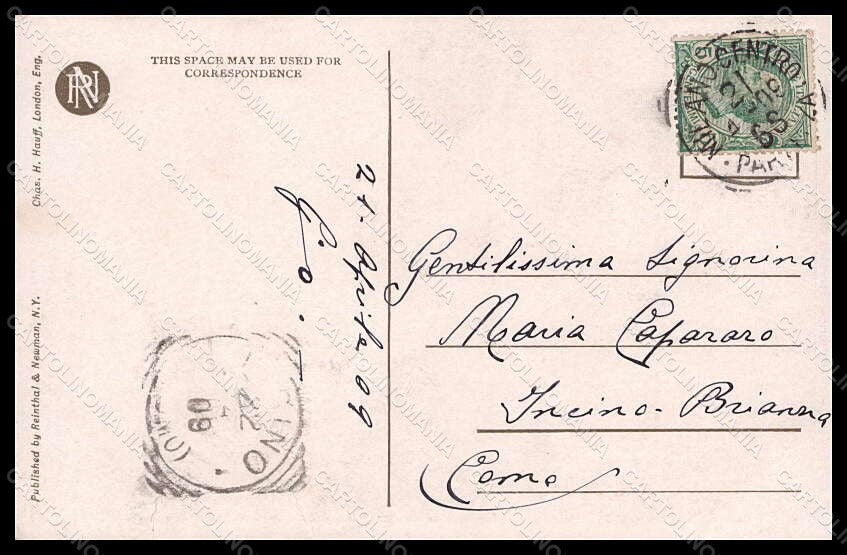 THIS SPACE MAY BE USED FOR
CORRESPONDENCE
RN
Chas. H. Hauff, London, Eng.
Published by Reinthal & Newman, N.Y.
21. Aprile 09
MILANO CENTRO
PARTENZA
21
Gentilissima Signorina
Maria Capararo
Incino - Brianza
Como
INO
09
(OM
CARTOLINOMANIA